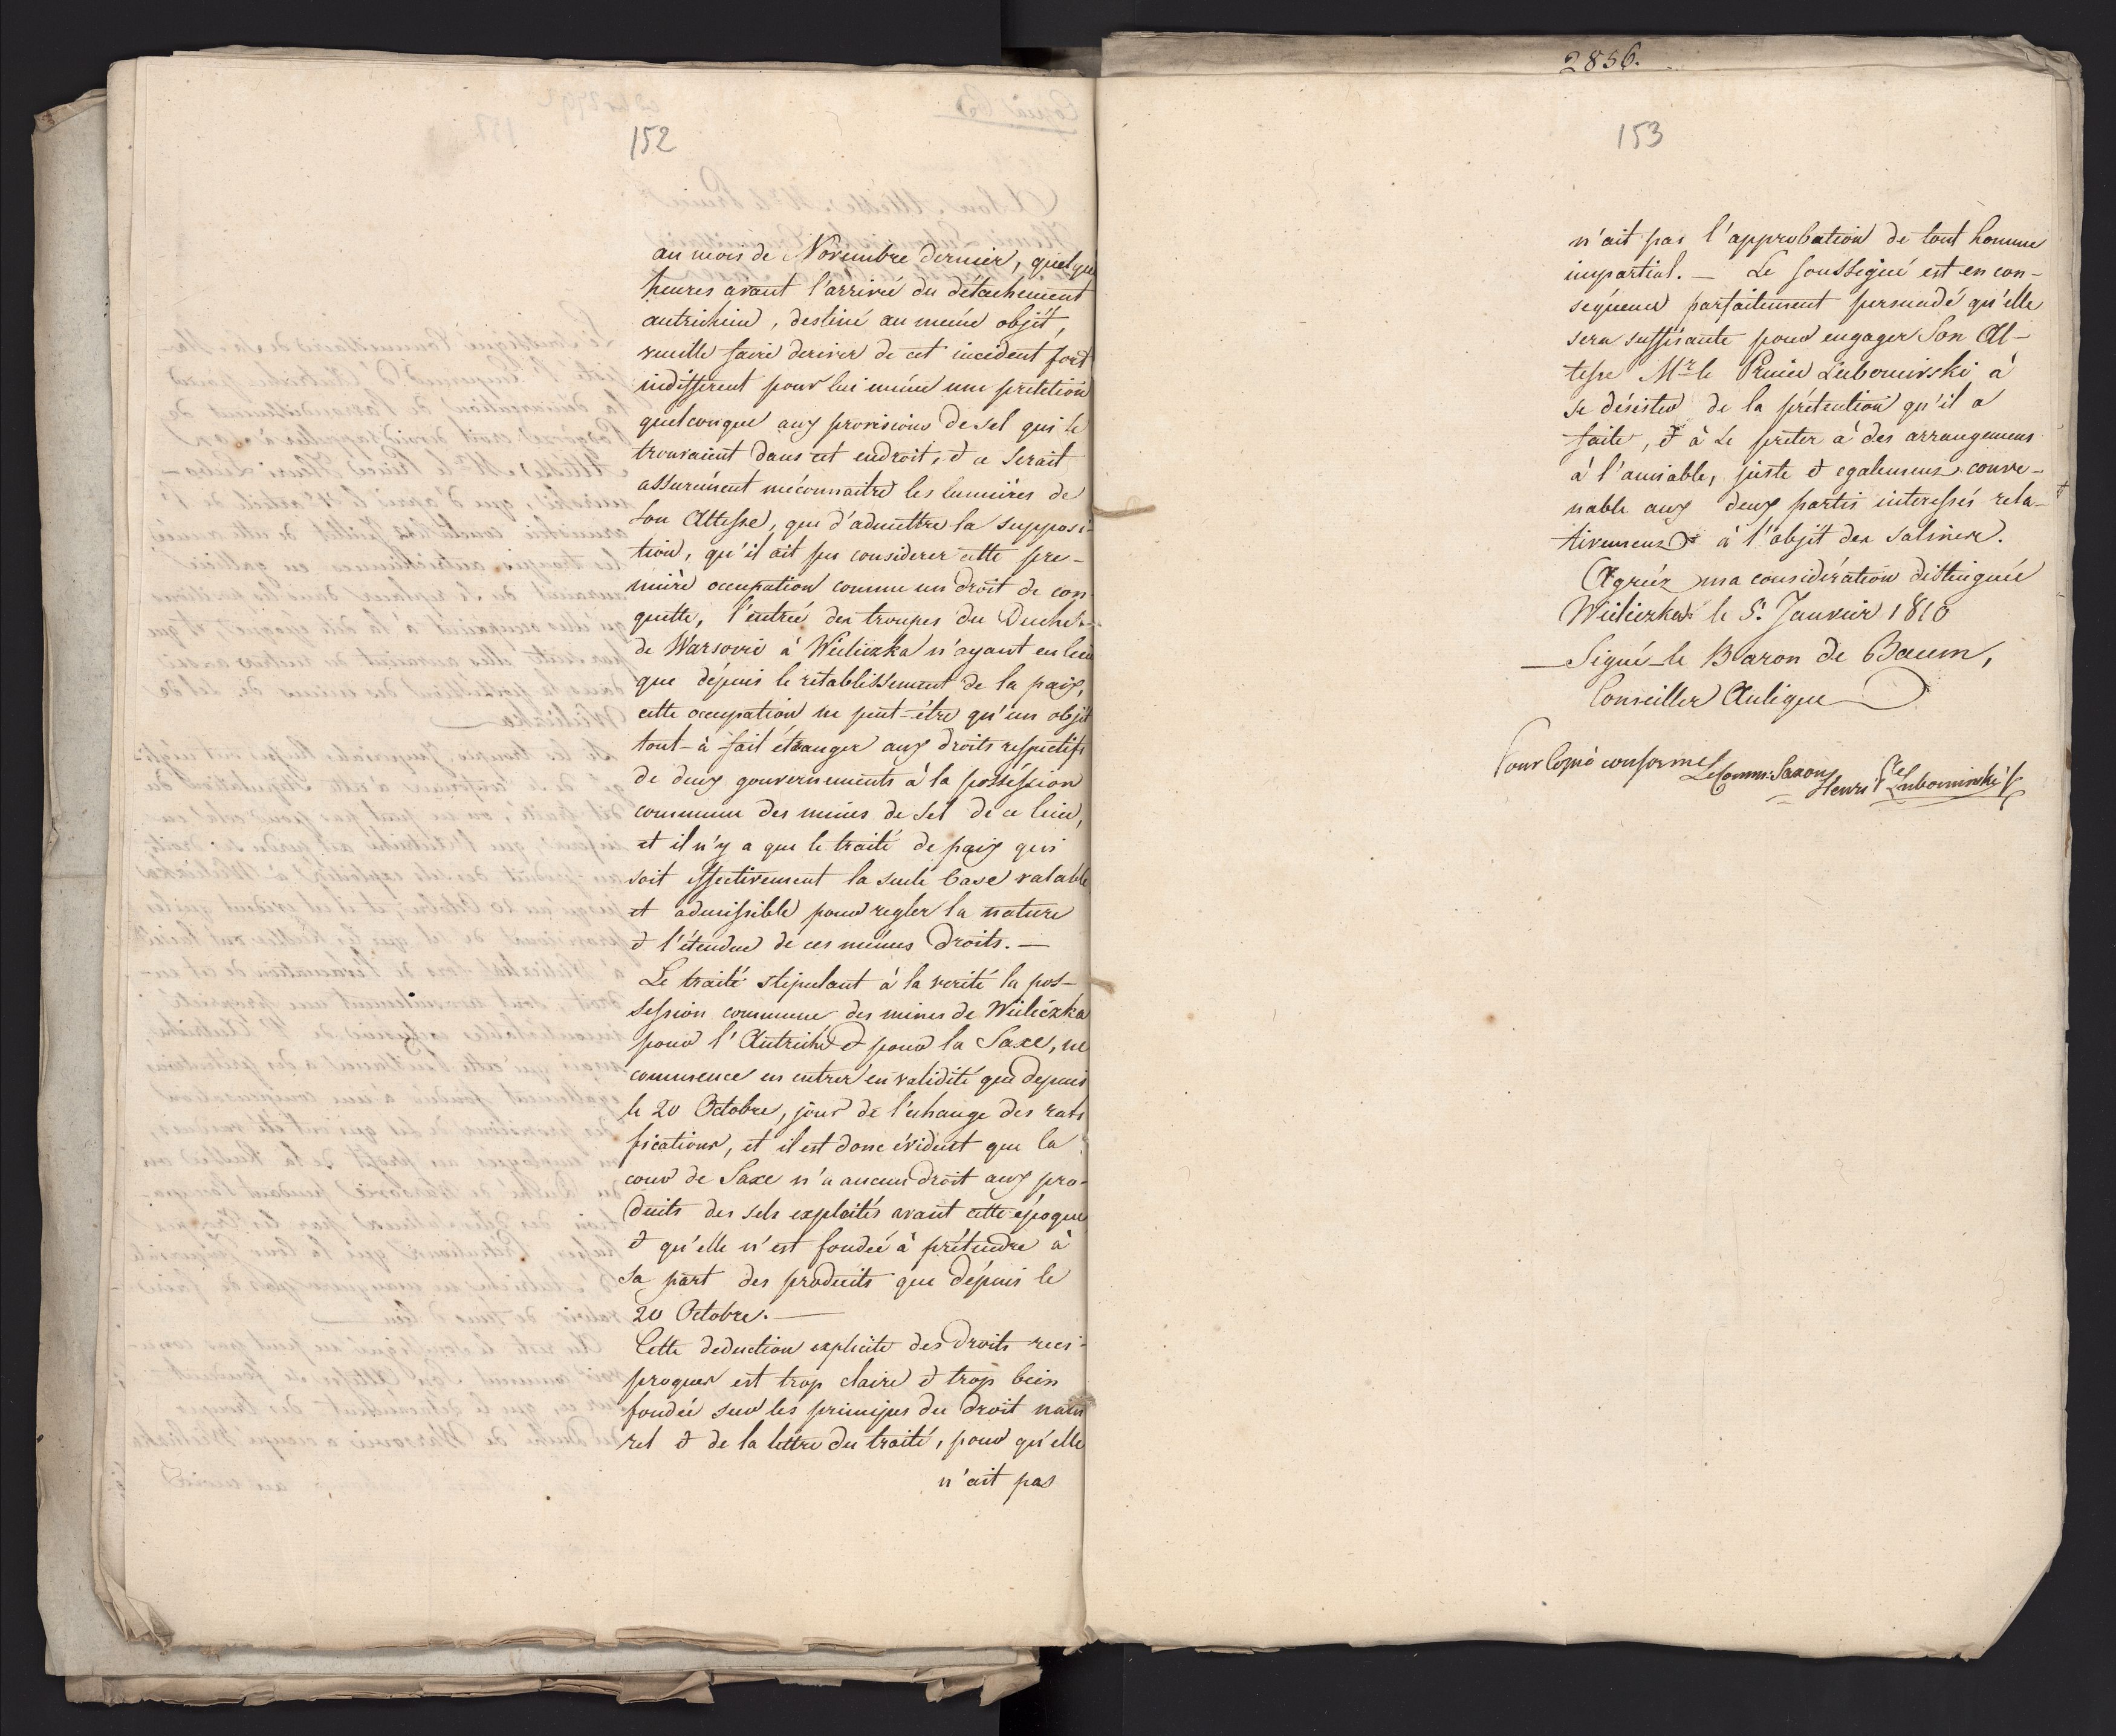 152
au mois de Novembre dernier, quelque
heures avant l'arrivé du détachement
autrichien, destiné au même objét,
veuille faire deriver de cet incident fort
indifferent pour lui même une pretétion
quelconque aux provisions de sel qui se
trouvaient dans cet endroit, et ce serait
assurément méconnaitre les lumières de
Son Altesse, que d'admettre la supposi-
tion, qu'il ait pu considerer cette pre-
mière occupation comme un droit de con-
quette, l'entrée des troupes du Duché
de Varsovie à Wieliczka n'ayant eu lieu
que dépuis le rétablissement de la paix,
cette occupation ne peut-être qu'un objét
tout-à-fait étranger aux droits respectifs
de deux gouvernements à la possession
commune des mines de sel de ce lieu,
et il n'y a que le traité de paix qui
soit effectivement la seule base valable
et admissible pour regler la nature
et l'étendue de ces mêmes droits. —
Le traité stipulant à la verité la pos-
session commune des mines de Wieliczka
pour l'Autriche et pour la Saxe, ne
commence en entrer en validité que depuis
le 20 Octobre, jour de l'échange des rati
fications, et il est donc évident que la
cour de Saxe n'a aucun droit aux pro-
duits des sels exploités avant cette époque
et qu'elle n'est fondée à prétendre à
sa part des produits que dépuis le
20 Octobre. —
Cette deduction explicite des droits reci-
proques est trop claire et trop bien
fondée sur les principes du droit natu
rel et de la lettre du traité, pour qu'elle
n'ait pas
2856.
153
n'ait pas l'approbation de tout homme
impartial. — Le soussigné est en con-
séquence parfaitement persuadé qu'elle
sera suffisante pour engager Son Al-
tesse Mr le Prince Lubomirski à
se désister de la prétention qu'il a
faite, et à se prêter à des arrangemens
à l'amiable, juste et egalement conve-
nable aux deux partis interessés rela-
tivement à l'objét des salines.
Agréez ma considération distinguée
Wieliczka le 5. Janvier 1810
— Signé — le Baron de Baum,
Conseiller Aulique
Pour Copie conforme
Le Comm: Saxon
Henri Pce Lubomirski